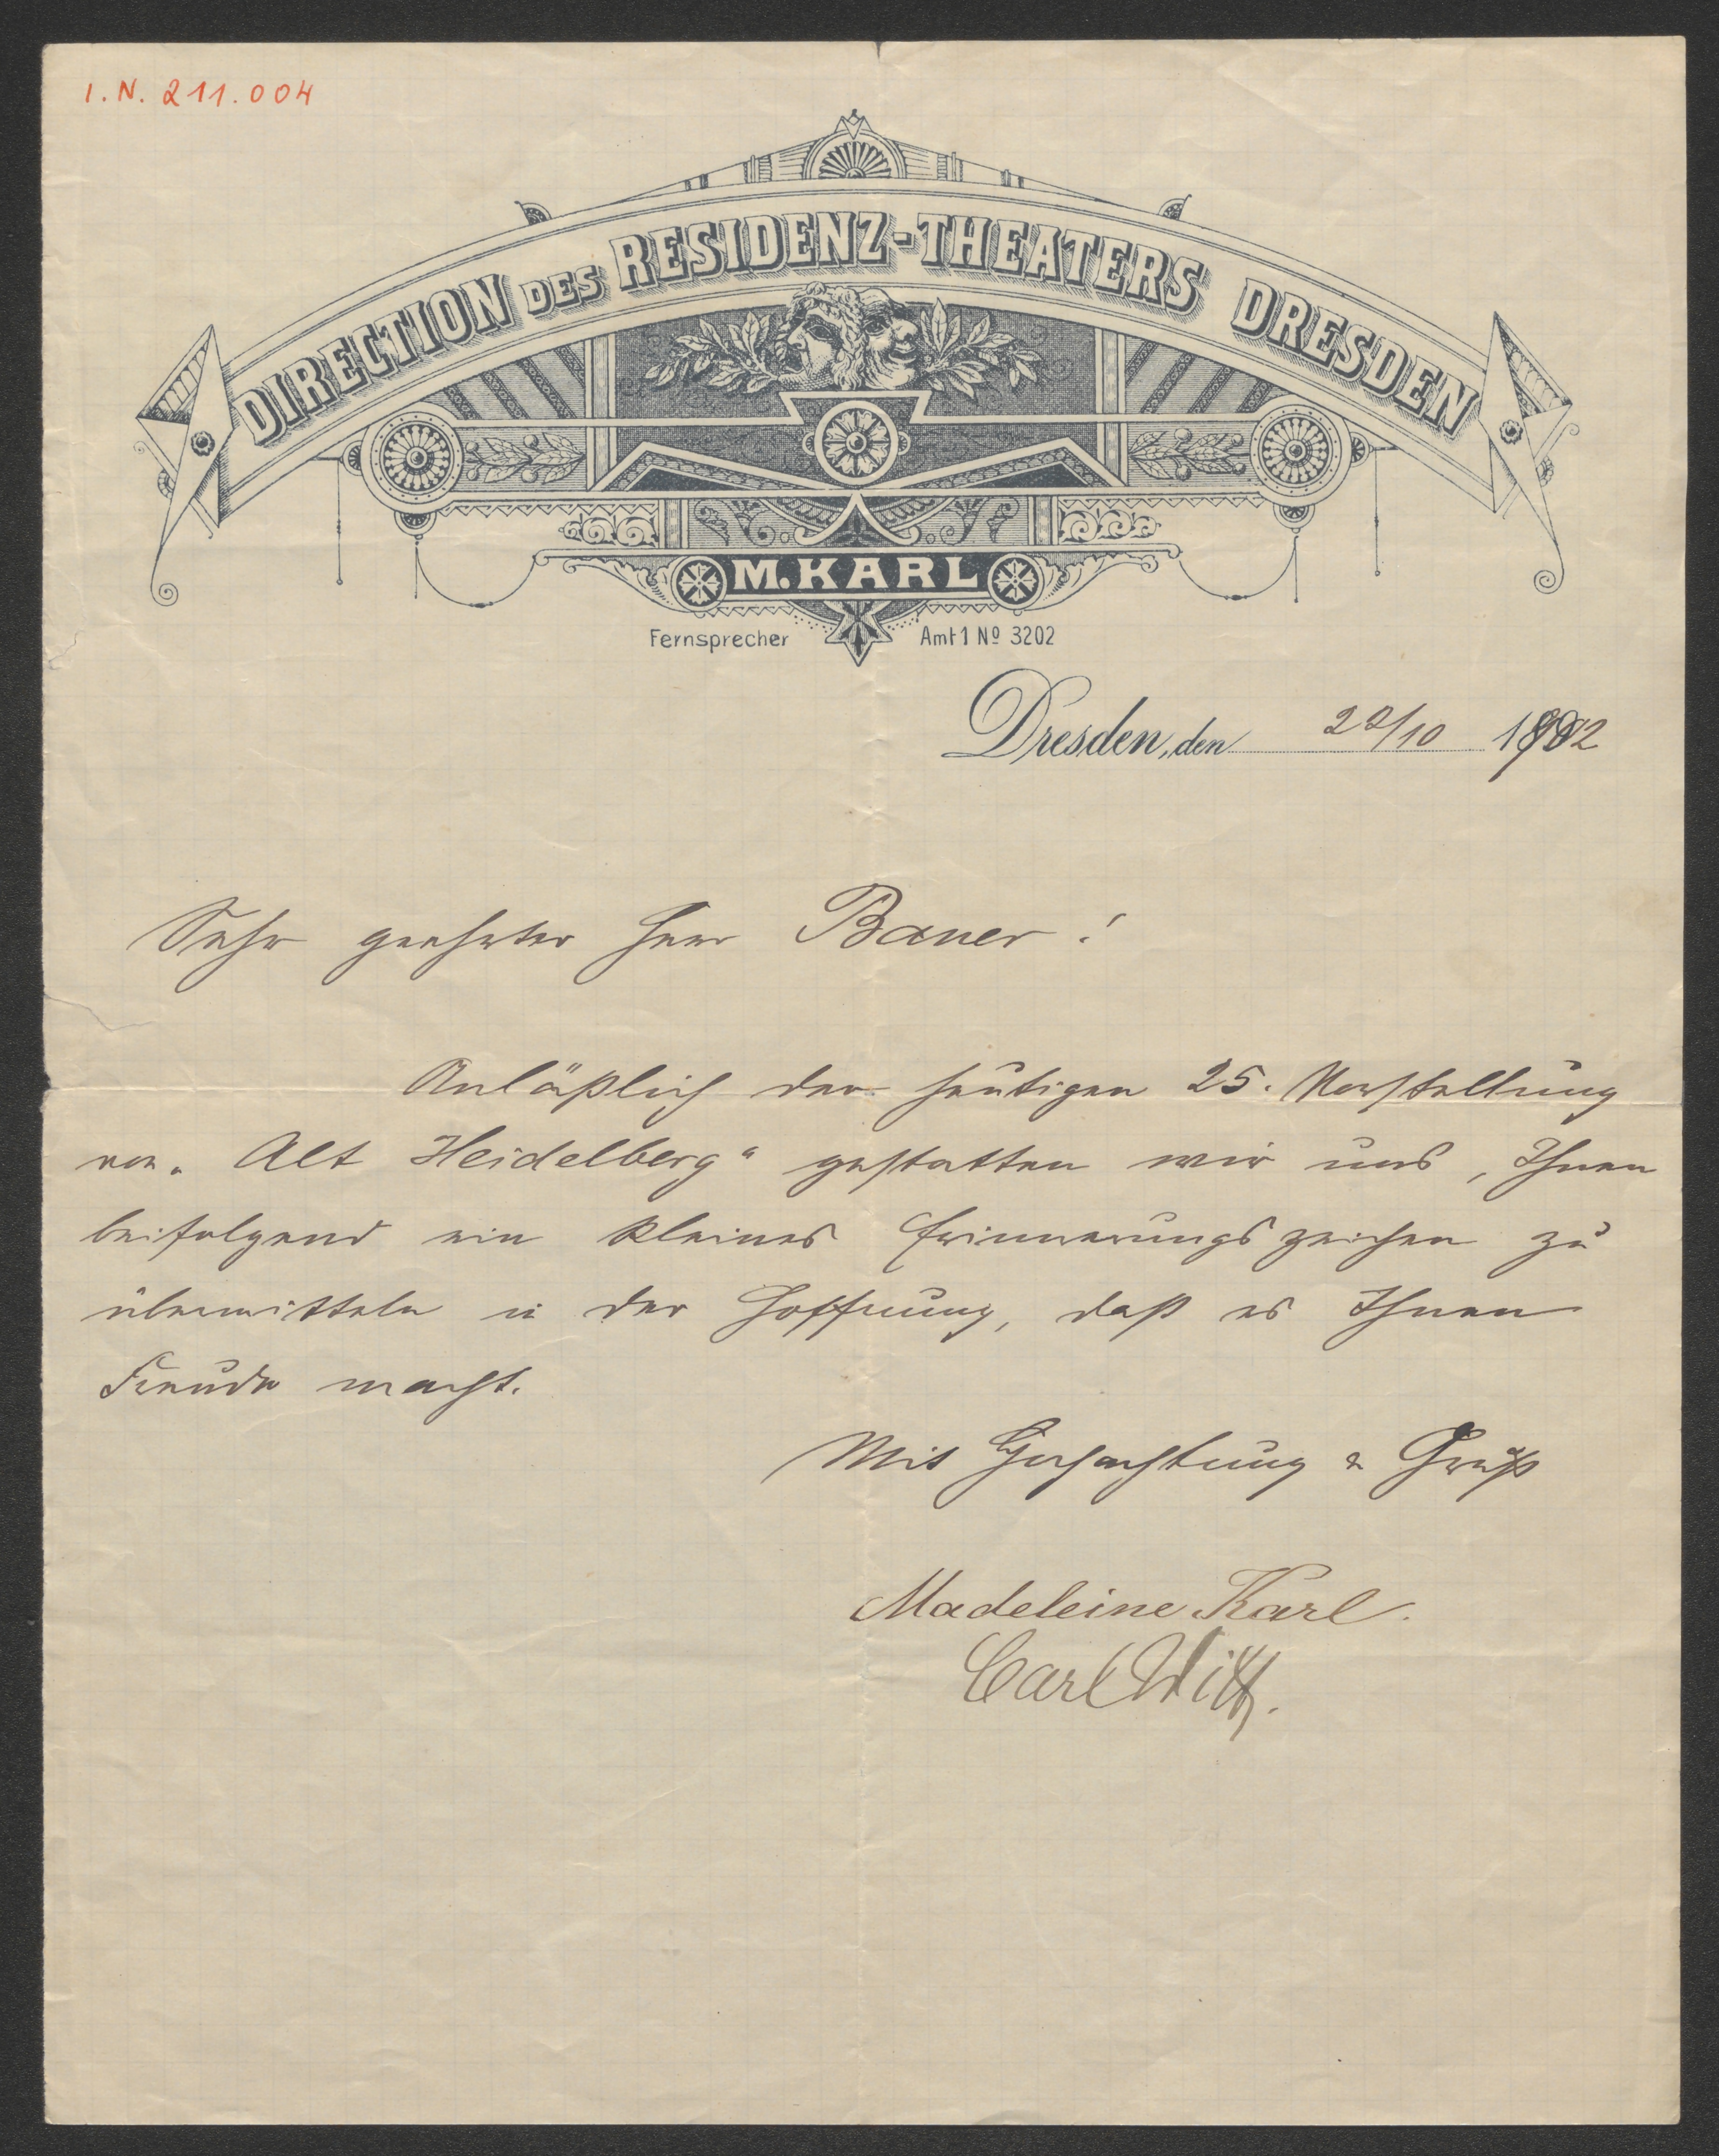 I.N. 211.004
DIRECTION DES RESIDENZ-THEATERS DRESDEN
M. KARL
Fernsprecher Amt 1 Nº 3202
Dresden, den 22/10 1902
Sehr geehrter Herr Bauer!
Anläßlich der heutigen 25. Vorstellung
von „Alt Heidelberg“ gestatten wir uns, Ihnen
beifolgend ein kleines Erinnerungszeichen zu
übermitteln in der Hoffnung, daß es Ihnen
Freude macht.
Mit Hochachtung & Gruß
Madeleine Karl.
Carl Witt.